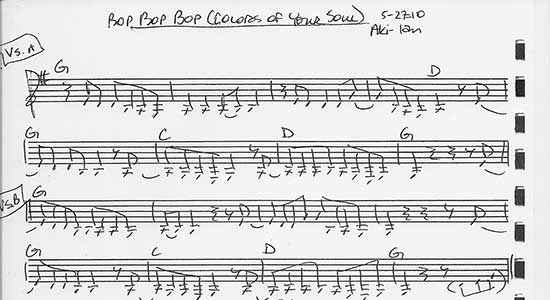 BOP BOP BOP (COLORS OF YOUR SOUL) 5-27-10
Aki-Ian
VS. A
G D
G C D G
VS. B
G
G C D G